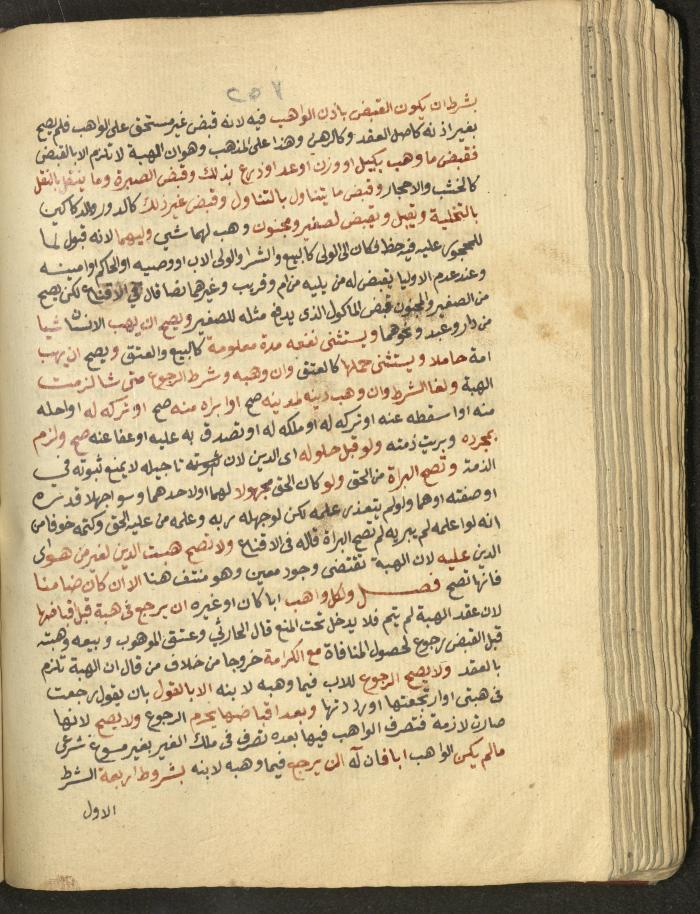 ٢٥٧
بشرط ان يكون القبض باذن الواهب فيه لانه قبض غير مستحق على الواهب فلم يصح
بغير اذنه كاصل العقد وكالرهن وهذا على المذهب وهو ان الهبة لا تلزم الا بالقبض
فقبض ما وهب بكيل او وزن او عد او ذرع بذلك وقبض الصبرة وما ينقل بالنقل
كالخشب والاحجار وقبض ما يتناول بالتناول وقبض غير ذلك كالدور والدكاكين
بالتخلية ويقبل ويقبض لصغير ومجنون وهب لهما شي وليهما لانه قبول لما
للمحجور عليه فيه حظ فكان الى الولى كالبيع والشرا والولى الاب او وصيه او الحاكم او امينه
وعند عدم الاوليا يقبض له من يليه من ام وقريب وغيرهما نصا قال في الاقناع لكن يصح
من الصغير والمجنون قبض الماكول الذى يدفع مثله للصغير ويصح ان يهب الانسان شيا
من دار وعبد ونحوهما ويستثنى نفعه مدة معلومة كالبيع والعتق ويصح ان يهب
امة حاملا ويستثنى حملها كالعتق وان وهبه وشرط الرجوع متى شا لزمت
الهبة ولغا الشرط وان وهب دينه لمدينه صح او ابراه منه صح او تركه له او احله
منه او اسقطه عنه او تركه له او ملكه له او تصدق به عليه او عفا عنه صح ولزم
بمجرده وبريت ذمته ولو قبل حلوله اى الدين لان تاجيله لا يمنع ثبوته في
الذمة وتصح البراة من الحق ولو كان الحق مجهولا لهما او لاحدهما وسوا جهلا قدره
او صفته او هما ولو لم يتعذر علمه لكن لو جهله ربه وعلمه من عليه الحق وكتمه خوفا من
انه لو اعلمه لم يبريه لم تصح البراة قاله في الاقناع ولا تصح هبت الدين لغير من هو اى
الدين عليه لان الهبة تقتضى وجود معين وهو منتف هنا الا ان كان ضامنا
فانها تصح فصــل ولكل واهب ابا كان او غيره ان يرجع فى هبة قبل قباضها
لان عقد الهبة لم يتم فلا يدخل تحت المنع قال الحارثي وعتق الموهوب وبيعه وهبته
قبل القبض رجوع لحصول المنافاة مع الكرامة خروجا من خلاف من قال ان الهبة تلزم
بالعقد ولا يصح الرجوع للاب فيما وهبه لابنه الا بالقول بان يقول رجعت
فى هبتى او ارتجعتها او رددتها وبعد اقباضها يحرم الرجوع ولا يصح لانها
صارت لازمة فتصرف الواهب فيها بعده تصرف فى ملك الغير بغير مسوغ شرعى
مالم يكن الواهب ابا فان له ان يرجع فيما وهبه لابنه بشروط اربعة الشرط
الاول